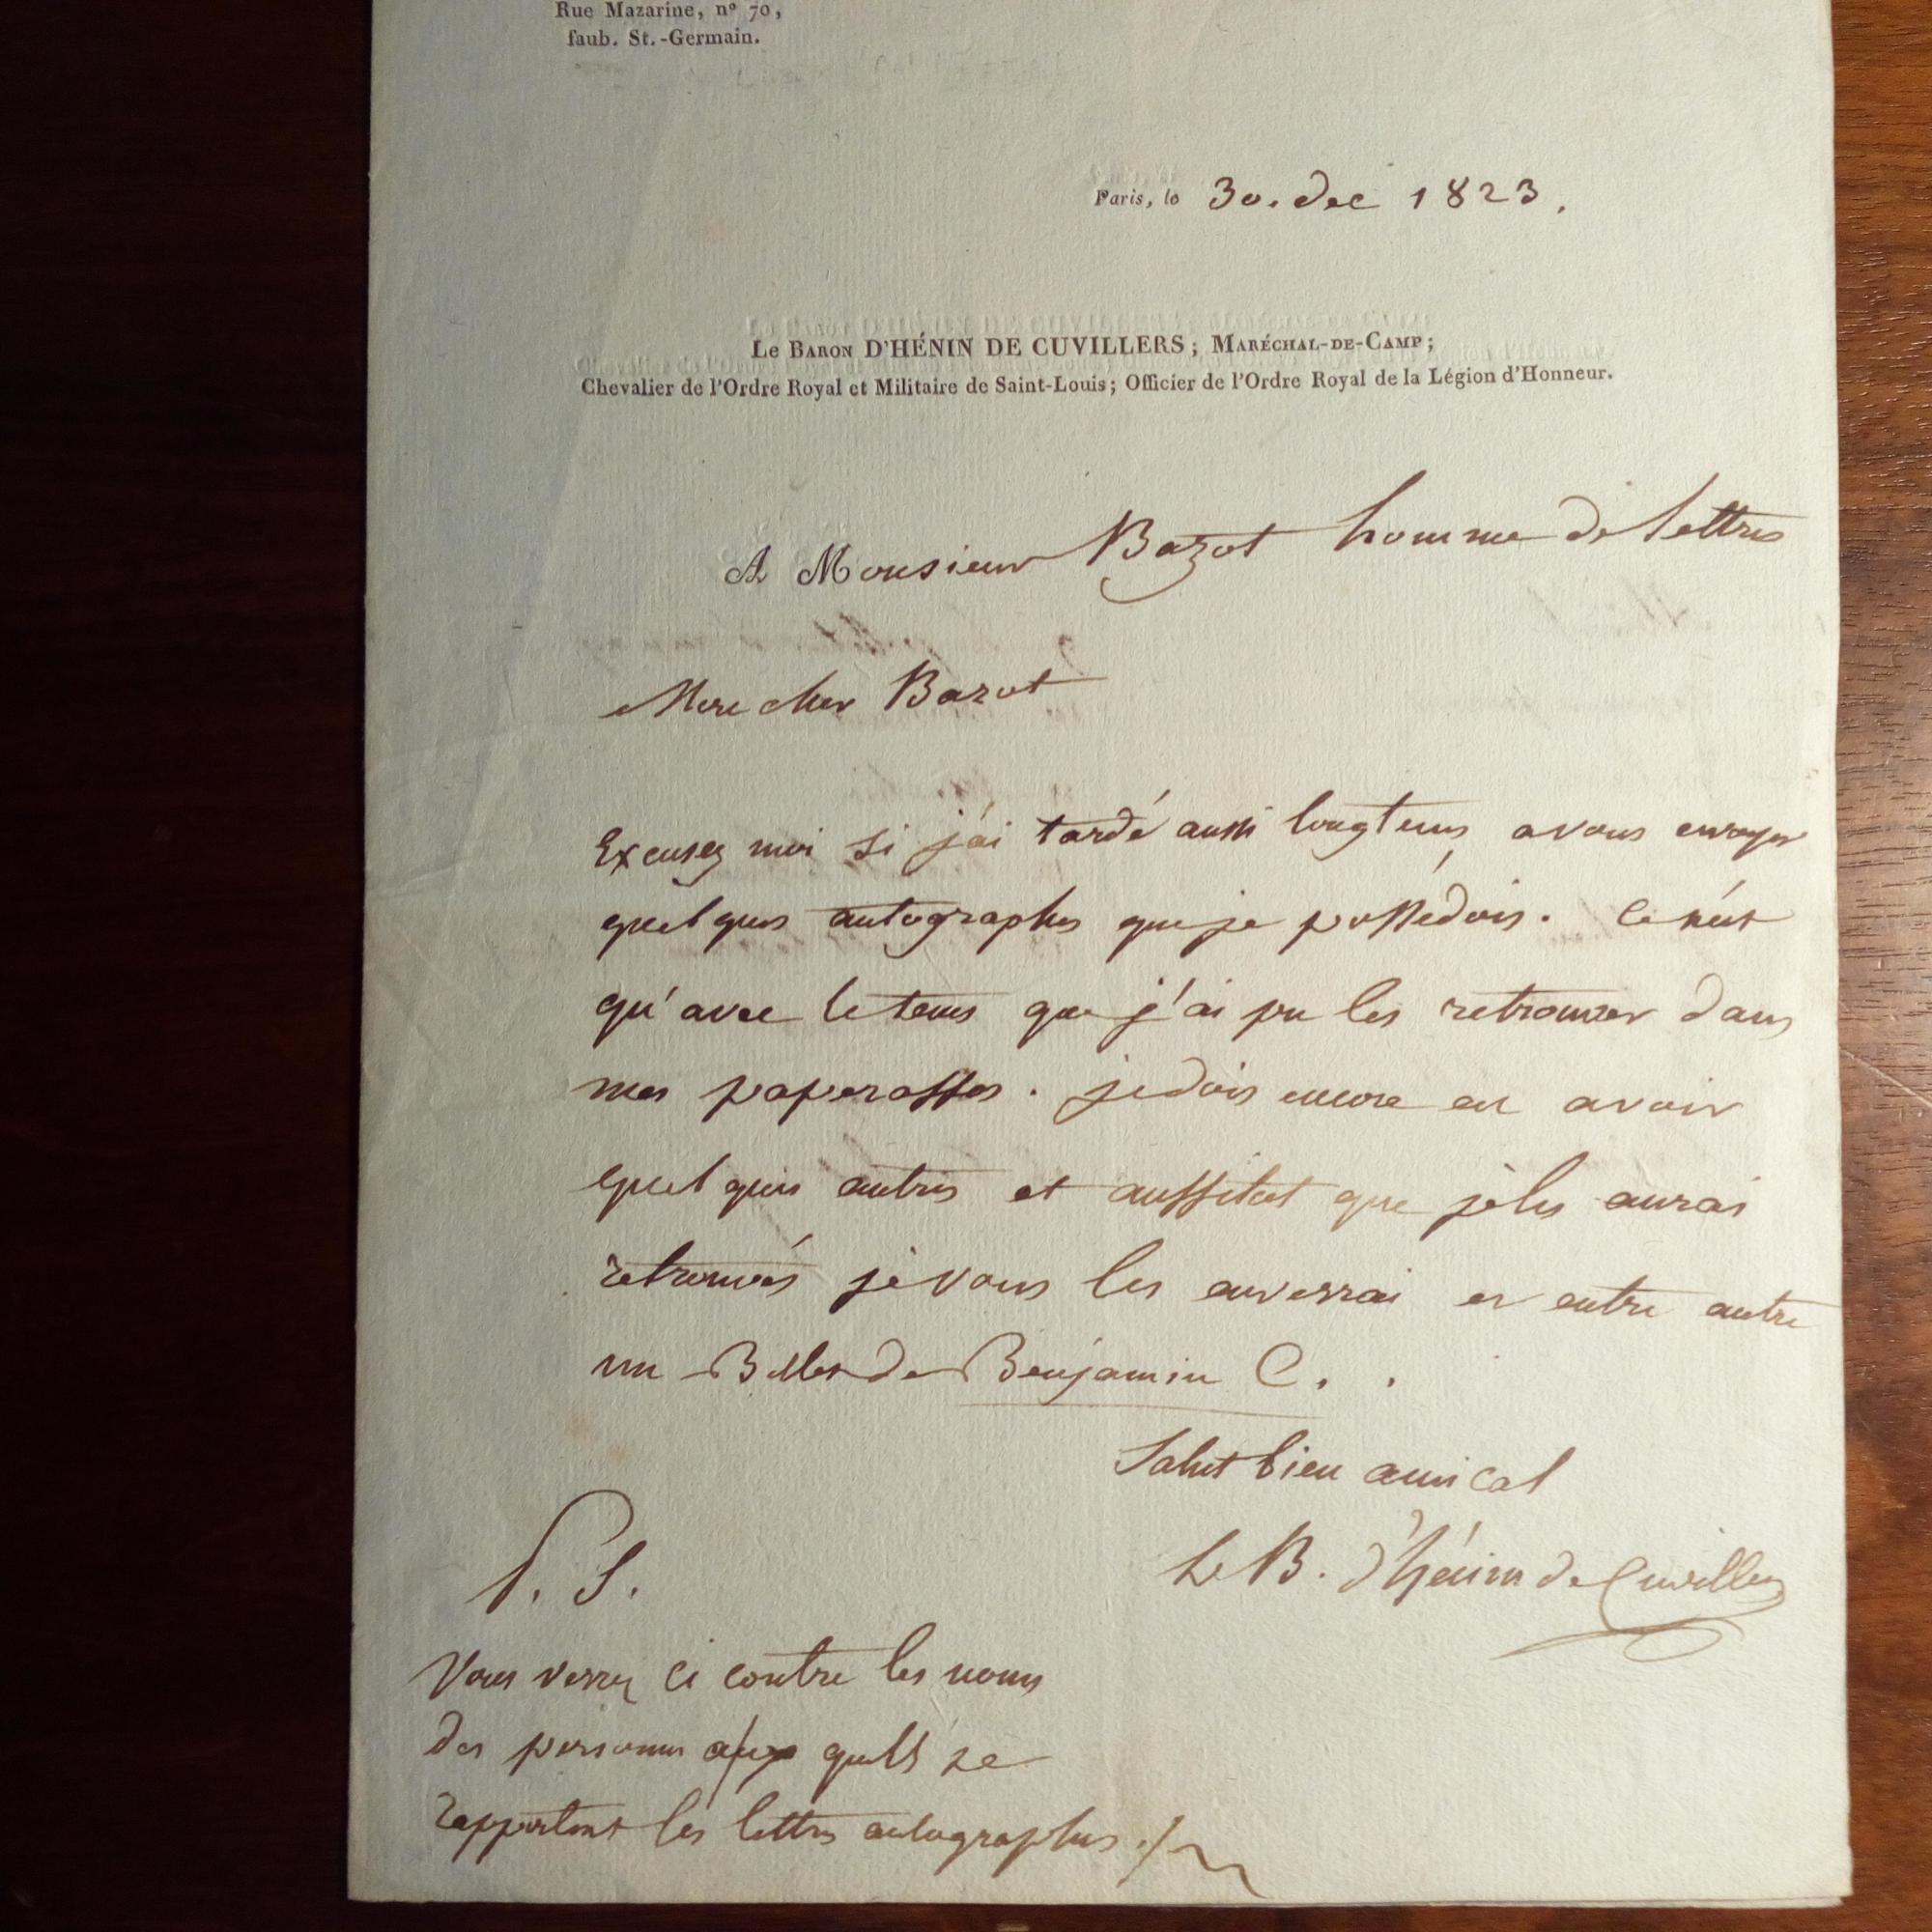 Rue Mazarine, n° 70,
faub. St.-Germain.
Paris, le 30. dec 1823.
Le Baron D'HÉNIN DE CUVILLERS; Maréchal-de-Camp;
Chevalier de l'Ordre Royal et Militaire de Saint-Louis; Officier de l'Ordre Royal de la Légion d'Honneur.
A Monsieur Bazot homme de lettres
Mon cher Bazot
Excusez moi si j'ai tardé aussi longtems a vous envoyer
quelques autographes que je possédois. Ce n'est
qu'avec le tems que j'ai pu les retrouver dans
mes paperasses. je dois encore en avoir
quelques autres et aussitot que je les aurai
retrouvés je vous les enverrai et entre autre
un Billet de Benjamin C.
Salut bien amical
Le B. d'hénin de Cuvillers
P. S.
Vous verrez ci contre les noms
des personnes aux quels se
rapportent les lettres autographes ./.